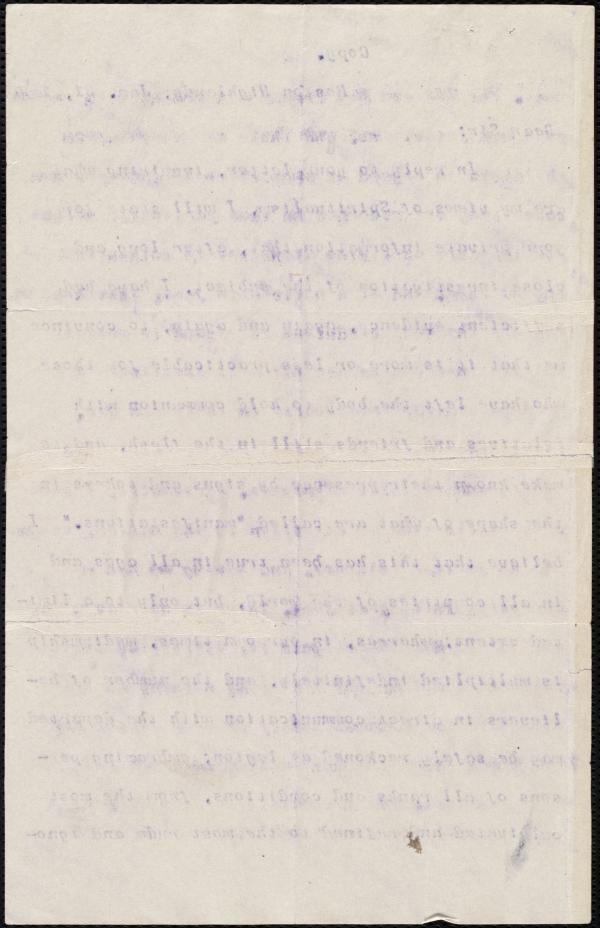 Copy.
Boston Highlands, Jan. 21,
Dear Sir:
In reply to your letter, inquiring
my views of Spiritualism, I will state for
your private information that, after long and
close investigation of the subject, I have had
sufficient evidence, again and again, to convince
me that it is more or less practicable for those
who have left the body to hold communion with
relatives and friends still in the flesh, and to
make known their presence by signs and tokens in
the shape of what are called "manifestations." I
believe that this has been true in all ages and
in all countries of the world, but only to a limi-
ted extent; whereas, in our own times, mediumship
is multiplied indefinitely, and the number of be-
lievers in direct communication with the departed
may be safely reckoned as legion; embracing per-
sons of all ranks and conditions, from the most
cultivated and refined to the most rude and igno-